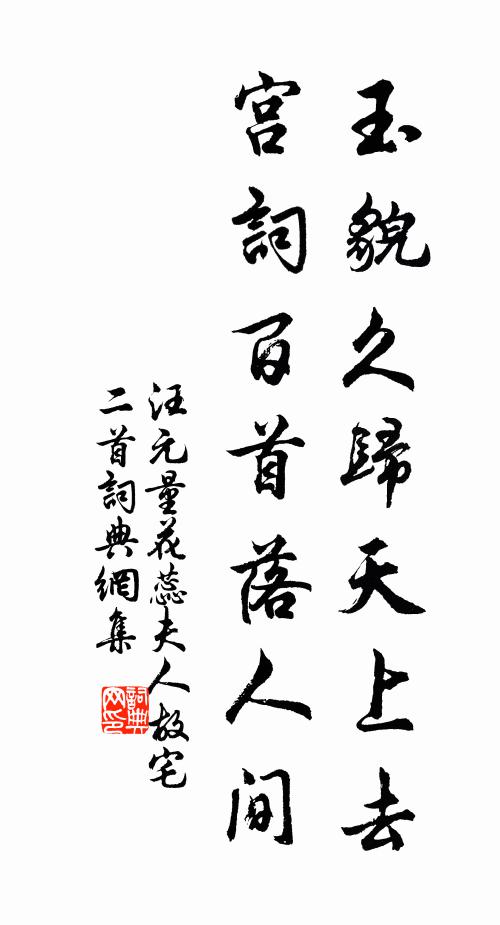 玉貌久歸天上去
宮詞百首落人间
汪元量花蕊夫人故宅
二首詞典網集
詞典
网印